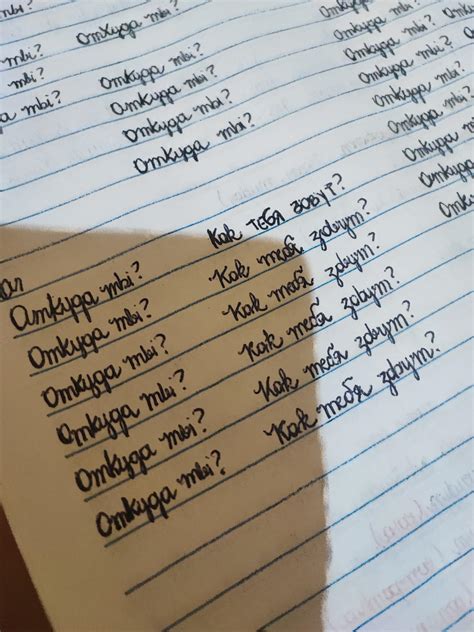 ты?
ты? Откуда ты? Откуда ты?
ты? Откуда ты? Откуда ты?
ты? Откуда ты? Откуда ты?
Откуда ты? Откуда ты?
Откуда ты? Откуда
Откуда
Откуда
Откуда ты? Как ТЕБЯ ЗОВУТ?
Откуда ты? Как тебя зовут?
Откуда ты? Как тебя зовут?
Откуда ты? Как тебя зовут?
Откуда ты? Как тебя зовут?
Откуда ты? Как тебя зовут?